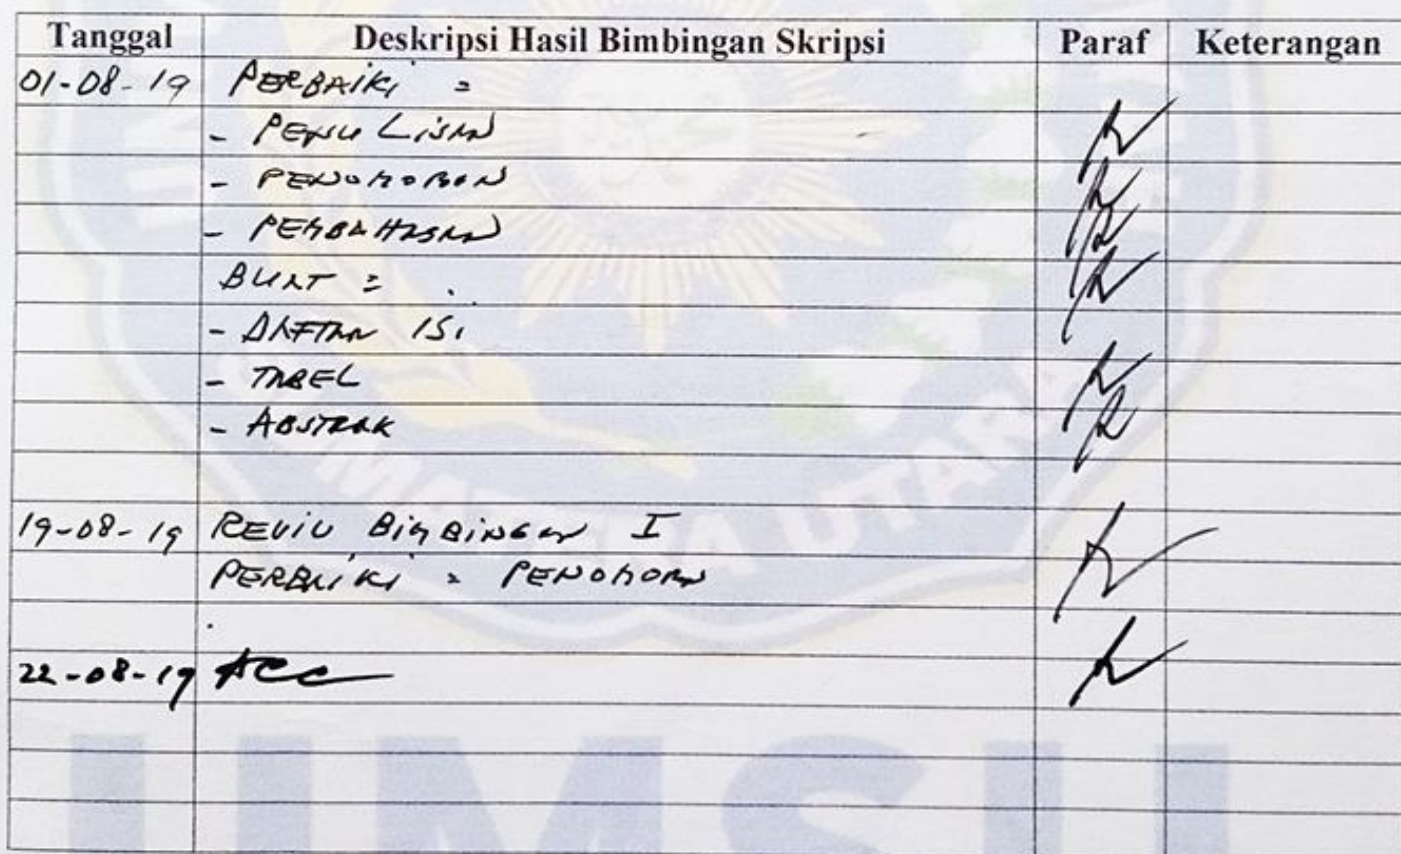 Tanggal Deskripsi Hasil Bimbingan Skripsi Paraf Keterangan
01-08-19 PERBAIKI =
- PENULISAN
- PENOMORAN
- PEMBAHASAN
BUAT =
- DAFTAR ISI
- TABEL
- ABSTRAK
19-08-19 REVIU BIMBINGAN I
PERBAIKI = PENOMORAN
22-08-19 ACC
MATERA UTARA
UMSU